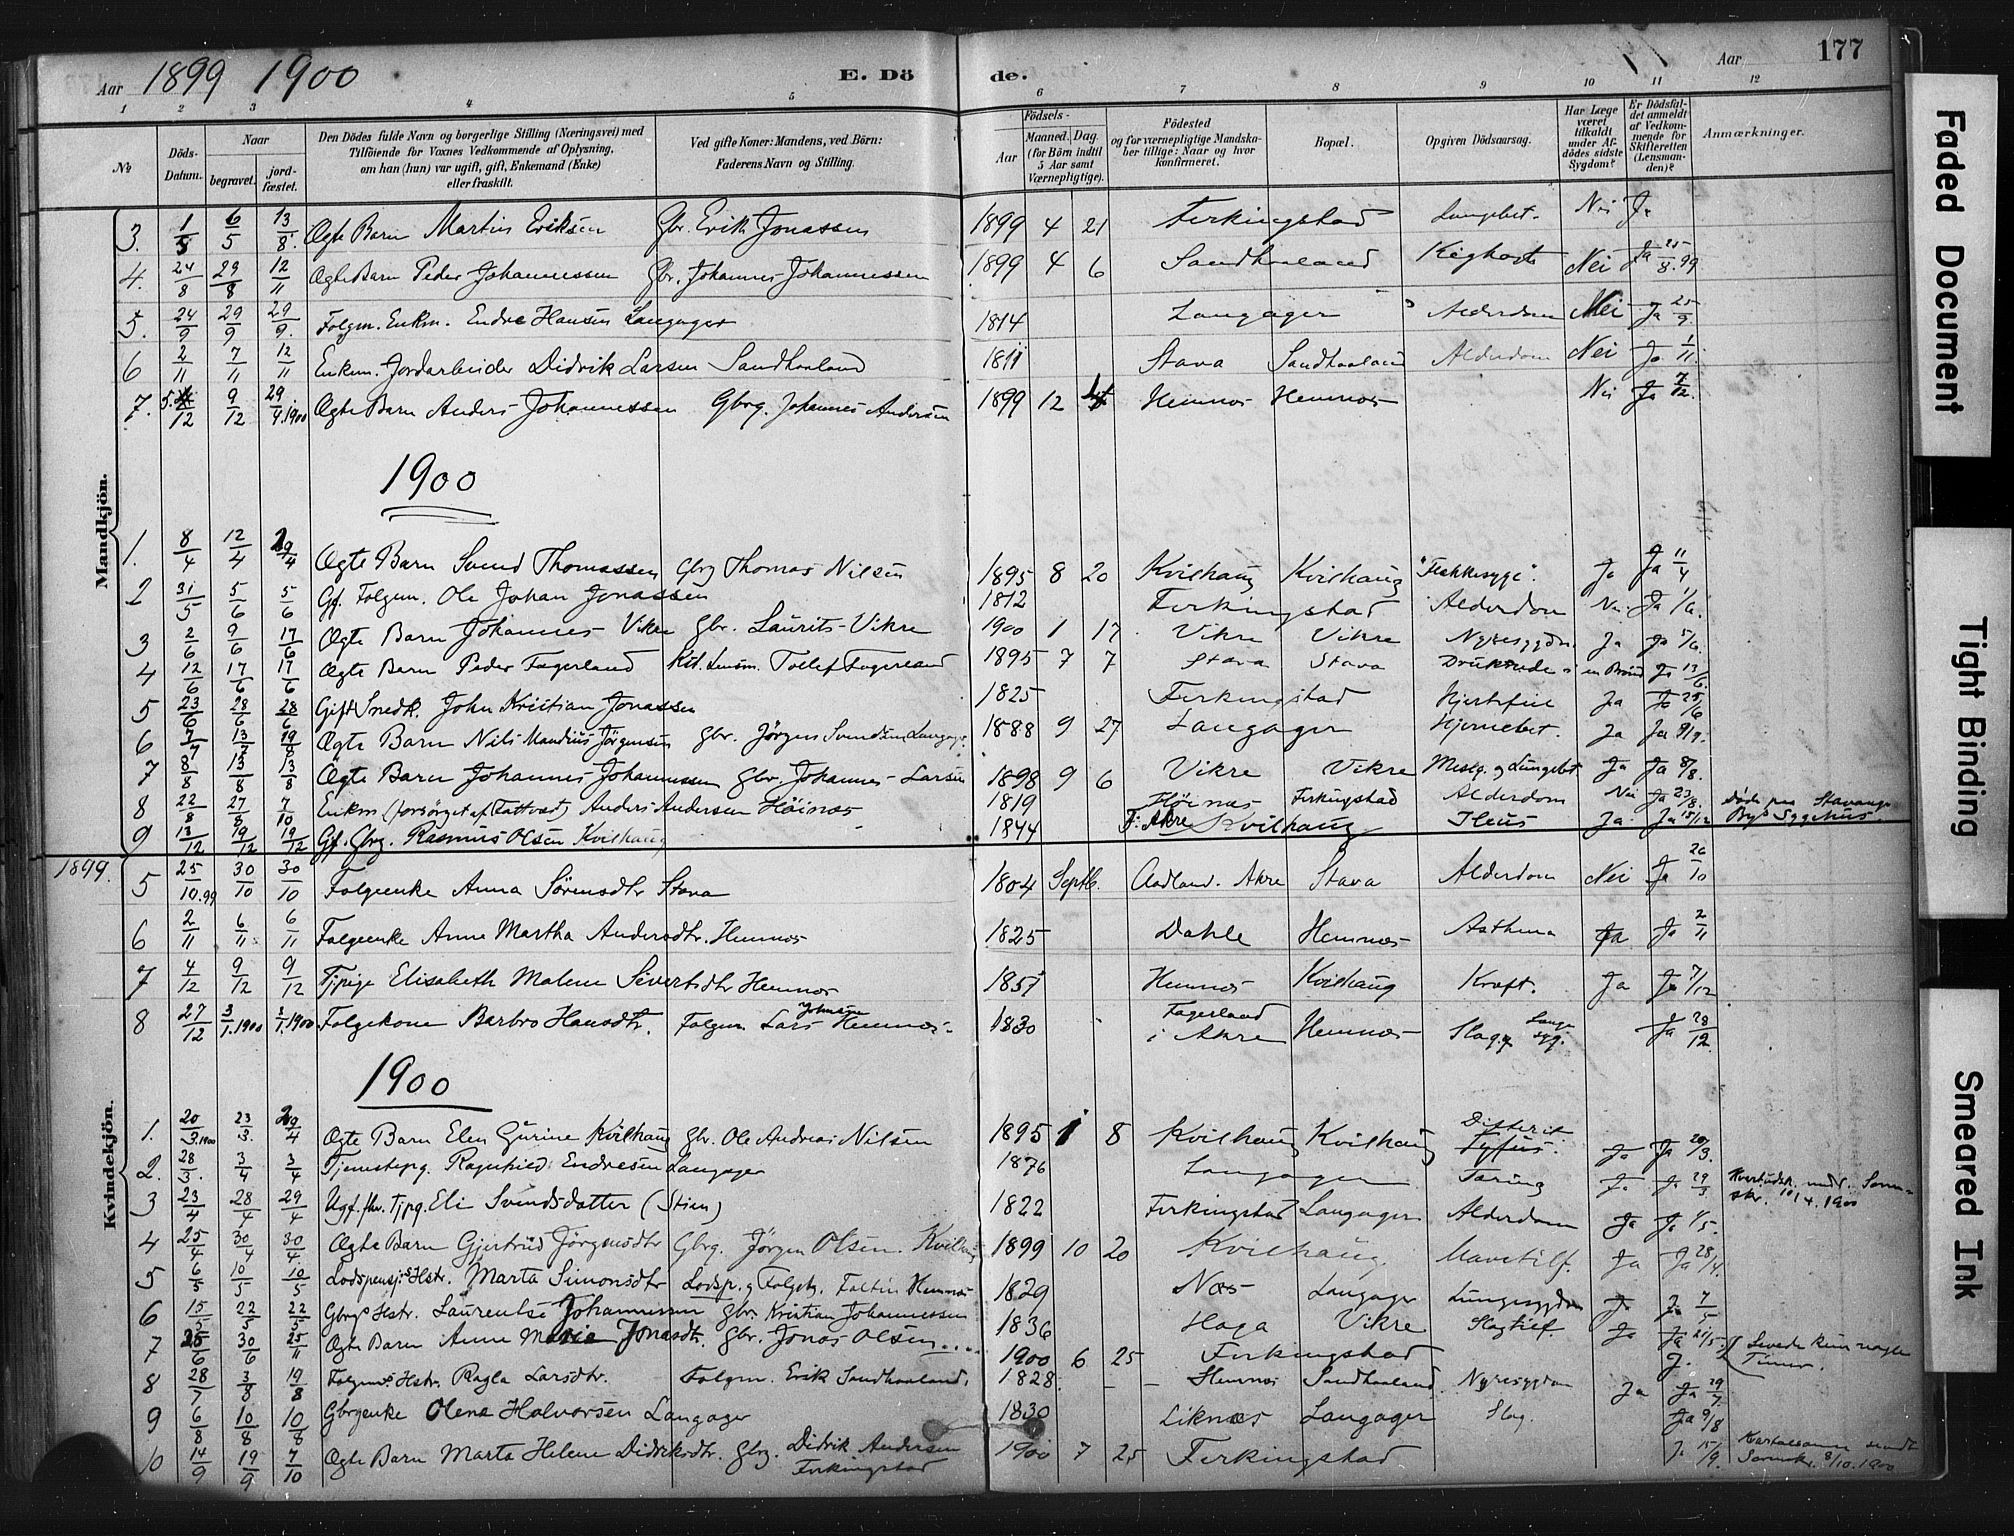 Aar 1899 1900 E. Dö de. Aar 177
1 2 3 4 5 6 7 8 9 10 11 12
No
Döds-Datum.
Naar
begravet.
jord-fæstet.
Den Dödes fulde Navn og borgerlige Stilling (Næringsvei) med
Tilföiende for Voxnes Vedkommende af Oplysning,
om han (hun) var ugift, gift, Enkemand (Enke)
eller fraskilt.
Ved gifte Koner: Mandens, ved Börn:
Faderens Navn og Stilling.
Födsels-
Aar
Maaned. Dag.
(for Börn indtil
5 Aar samt
Værnepligtige).
Födested
og for værnepligtige Mandska-
ber tillige: Naar og hvor
konfirmeret.
Bopæl.
Opgiven Dödsaarsag.
Har Læge
været
tilkaldt
under Af-
dödes sidste
Sygdom?
Er Dödsfal-
det anmeldt
af Vedkom-
mende for
Skifteretten
(Lensman-
den)?
Anmærkninger.
Mandkjön.
3. 1/5 6/5 13/8 Ægte Barn Martin Eriksen Gbr. Erik Jonassen 1899 4 21 Ferkingstad Lungebet. Nei Ja
4. 24/8 29/8 12/11 Ægte Barn Peder Johannessen Gbr. Johannes Johannessen 1899 4 6 Sandhaaland Kighoste Nei Ja 25/8.99
5. 24/9 29/9 29/9 Folgm. Enkm. Endre Hansen Langager 1814 Langager Alderdom Nei Ja 25/9.
6 2/11 7/11 12/11 Enkem. Jordarbeider Didrik Larsen Sandhaaland 1811 Stava Sandhaaland Alderdom Nei Ja 1/11
7. 5./12 9/12 29/4.1900 Ægte Barn Anders Johannessen Gbrg. Johannes Andersen 1899 12 4 Hemnes Hemnes Nei Ja 7/12.
1900
1. 8/4 12/4 29/4 Ægte Barn Svend Thomassen Gbrg Thomas Nilsen 1895 8 20 Kvilhaug Kvilhaug "Flekkesyge". Ja Ja 11/4
2 31/5 5/6 5/6 Gf. Folgem. Ole Johan Jonassen 1812 Ferkingstad Alderdom Nei Ja 1/6.
3 2/6 9/6 17/6 Ægte Barn Johannes Vikre Gbr. Laurits Vikre 1900 1 17. Vikre Vikre Nyresygdm Ja Ja 5/6.
4 12/6 17/6 17/6 Ægte Barn Peder Fagerland Kst. Lensm. Tollef Fagerland 1895 7 7 Stava Stava Druknede i en Brönd Ja 13/6.
5 23/6 28/6 28/6 Gift Snedk. John Kristian Jonassen 1825 Ferkingstad Hjertefeil Ja Ja 25/6
6 7/7 13/7 19/8 Ægte Barn Nils Mandius Jörgensen Gbr. Jörgen Langager 1888 9 27 Langager Hjernebet. Ja Ja 9/7.
7 8/8 13/8 13/8 Ægte Barn Johannes Johannessen Gbr. Johannes Larsen 1898 9 6 Vikre Vikre Mesl. og Lungebet Ja Ja 8/8.
8 22/8 27/8 7/10 Enkm (forsörget af Fattvæs) Anders Andersen Höines 1819 Höines Ferkingstad Alderdom Nei Ja 23/8. Döde paa Stavanger
9 13/12 19/12 19/12 Gf. Gbrg. Rasmus Olsen Kvilhaug 1844 F. Akre Kvilhaug Ileus Ja Ja 15/12 Bys Sygehus.
Kvindekjön.
1899. 5 25/10.99 30/10 30/10 Folgeenke Anna Sörensdtr Stava 1804 Septb. Aadland. Akre Stava Alderdom Nei Ja 26/10
6 2/11 6/11 6/11 Folgeenke Anne Martha Andersdtr. Hemnes 1825 Dahle Hemnes Asthma Ja Ja 2/11
7 4/12 9/12 9/12 Tjpige Elisabeth Malene Sivertsdtr Hemnes 1857 Hemnes Kvilhaug Kræft. Ja Ja 7/12
8 27/12 3/1.1900 3/1.1900 Folgekone Barbro Hansdtr. Folgm Lars Johnsen Hemnes 1830 Fagerland i Akre Hemnes Slag og Lungesyg. Ja 28/12.
1900
1. 20/3.1900 23/3. 29/4 Ægte Barn Elen Gurine Kvilhaug Gbr. Ole Andreas Nilsen 1895 1 8 Kvilhaug Kvilhaug Difterit Tyfus. Ja Ja 20/3.
2. 28/3. 3/4 3/4 Tjenstepg. Ragnhild Endresen Langager 1876 Langager Tæring Ja Ja 29/3
3 23/4 28/4 29/4 Ugf. fhv. Tjpg. Eli Svendsdatter (Stien) 1822 Ferkingstad Langager Alderdom Ja Ja 1/5.
4 25/4 30/4 30/4. Ægte Barn Gjertrud Jörgensdtr Gbrg. Jörgen Olsen Kvilhaug 1899 10 20 Kvilhaug Mavetilf. Ja Ja 28/4.
5 6/5 10/5 10/5 Lodspensj.s Hstr. Marta Simonsdtr Lodsp. og Folgebg. Faltin Hemnes 1829 Næs Langager Lungesygdom Ja Ja 7/5
6 15/5 22/5 22/5 Gbrgs Hstr. Laurentse Johannessen Gbr. Kristian Johannessen 1836 Haga Vikre Slagtilf. Ja Ja 21/5.
7 25/6 30/6 25/11 Ægte Barn Anne Marie Jonasdtr. Gbr. Jonas Olsen.... 1900 6 25 Ferkingstad J. Levede kun nogle Timer.
8 28/7 3/8 19/8 Folgms Hstr. Ragla Larsdtr. Folgm. Erik Sandhaaland. 1828. - - Hemnes Sandhaaland Nyresygdom Ja Ja 29/7.
9 6/8 10/8 10/8 Gbrgenke Olene Halvorsen Langager 1830 Liknæs Langager Slag. Ja 9/8
10 14/9 19/9 7/10 Ægte Barn Marta Helene Didriksdtr. Gbrg. Didrik Andersen Ferkingstad 1900 7 25 Ferkingstad J. 15/9. 8/10.1900
Faded Document
Tight Binding
Smeared Ink